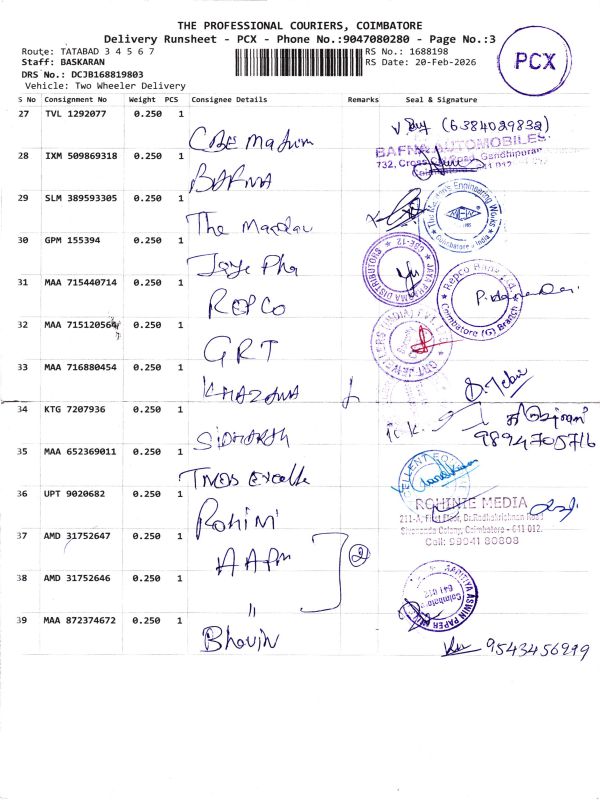 THE PROFESSIONAL COURIERS, COIMBATORE
Delivery Runsheet - PCX - Phone No.:9047080280 - Page No.:3
Route: TATABAD 3 4 5 6 7
RS No.: 1688198
Staff: BASKARAN
RS Date: 20-Feb-2026
DRS No.: DCJB168819803
Vehicle: Two Wheeler Delivery
PCX
S No Consignment No Weight PCS Consignee Details Remarks Seal & Signature
27 TVL 1292077 0.250 1
CBE
(6384029832)
28 IXM 509869318 0.250 1
BAFNA
BAFNA AUTOMOBILES
732, Cross Cut Road, Gandhipuram
Coimbatore - 641 012
29 SLM 389593305 0.250 1
The
The Modern Engineering Works
Coimbatore India
30 GPM 155394 0.250 1
Jaya Pha
JAYA PHARMA DISTRIBUTORS
CBE-12
31 MAA 715440714 0.250 1
REPCO
Repco Bank Ltd.
Coimbatore (G) Branch
32 MAA 715120564 0.250 1
GRT
GRT JEWELLERS (INDIA) PVT. LTD
33 MAA 716880454 0.250 1
KHAZANA
34 KTG 7207936 0.250 1
SIDHARTH
9894705716
35 MAA 652369011 0.250 1
36 UPT 9020682 0.250 1
Rohini
ROHINIE MEDIA
211-A, First Floor, Dr.Radhakrishnan Road
Sivananda Colony, Coimbatore - 641 012.
Cell: 98941 80808
37 AMD 31752647 0.250 1
2
38 AMD 31752646 0.250 1
"
ASWIN PAPER
Coimbatore
641 012
39 MAA 872374672 0.250 1
Bhavin